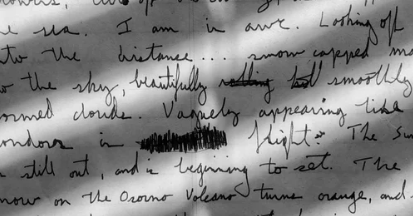 e sea. I am in awe. Looking off
to the distance... snow capped
o the sky, beautifully smoothly
ormed clouds. Vaguely appearing like
ondors in flight. The Sun
still out, and is beginning to set. The
now on the Osorno Volcano turns orange, and